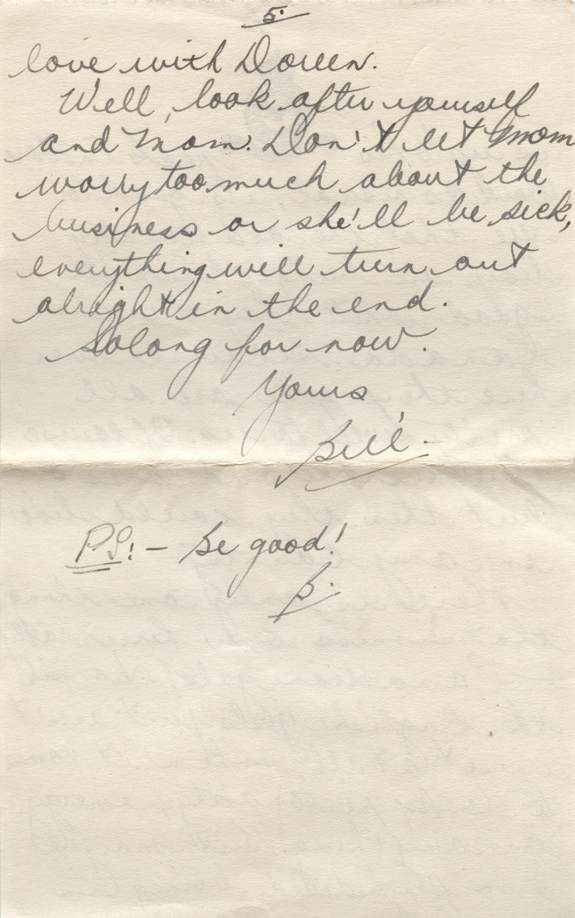 5.
love with Doreen.
Well, look after yourself
and Mom. Don't let Mom
worry too much about the
business or she'll be sick,
everything will turn out
alright in the end.
Solong for now.
Yours
Bill.
PS:- Be good!
B.